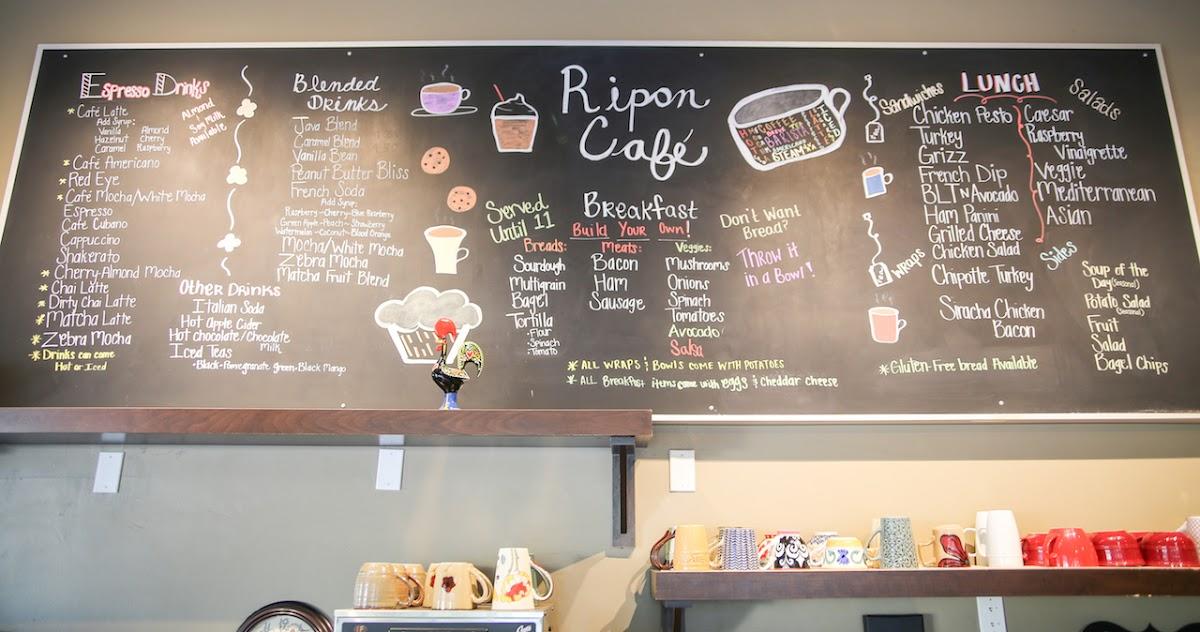 Espresso Drinks
Almond
Soy Milk
Available
* Café Latte
Add Syrup:
Vanilla Almond
Hazelnut Cherry
Caramel Raspberry
* Café Americano
* Red Eye
* Café Mocha/White Mocha
Espresso
Café Cubano
Cappuccino
Shakerato
* Cherry-Almond Mocha
* Chai Latte
* Dirty Chai Latte
* Matcha Latte
* Zebra Mocha
* Drinks can come
Hot or Iced
Other Drinks
Italian Soda
Hot Apple Cider
Hot chocolate/Chocolate
Milk
Iced Teas
•Black•Pomegranate green•Black Mango
Blended
Drinks
Java Blend
Caramel Blend
Vanilla Bean
Peanut Butter Bliss
French Soda
Add Syrup:
Raspberry-Cherry-Blue Raspberry
Green Apple-Peach-Strawberry
Watermelon-Coconut-Blood Orange
Mocha/White Mocha
Zebra Mocha
Matcha Fruit Blend
Ripon
Café
COFFEE
BARISTA
AMERICANO
STEAM
Served
Until 11
Breakfast
Build Your Own!
Breads:
Sourdough
Multigrain
Bagel
Tortilla
•Flour
•Spinach
•Tomato
Meats:
Bacon
Ham
Sausage
Veggies:
Mushrooms
Onions
Spinach
Tomatoes
Avocado
Salsa
Don't Want
Bread?
Throw it
in a Bowl!
* ALL WRAPS & Bowls COME WITH POTATOES
* ALL Breakfast items come with eggs & cheddar cheese
LUNCH
Sandwiches
Chicken Pesto
Turkey
Grizz
French Dip
BLT N Avocado
Ham Panini
Grilled Cheese
Chicken Salad
Wraps
Chipotle Turkey
Siracha Chicken
Bacon
Salads
Caesar
Raspberry
Vinaigrette
Veggie
Mediterranean
Asian
Sides
Soup of the
Day (Seasonal)
Potato Salad
(Seasonal)
Fruit
Salad
Bagel Chips
* Gluten-Free bread Available